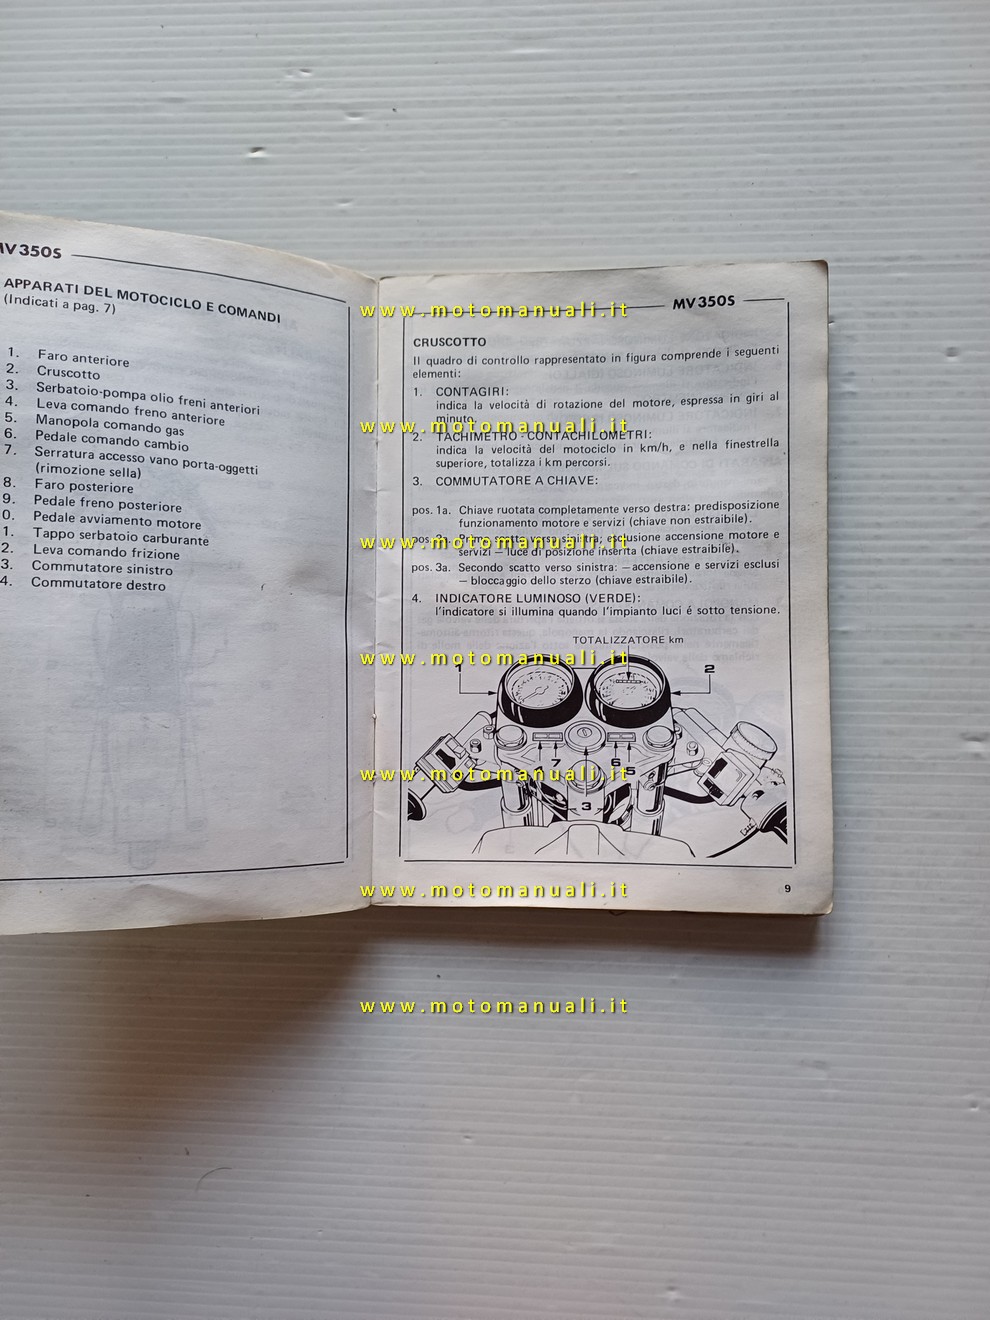 MV350S
APPARATI DEL MOTOCICLO E COMANDI
(Indicati a pag. 7)
1. Faro anteriore
2. Cruscotto
3. Serbatoio-pompa olio freni anteriori
4. Leva comando freno anteriore
5. Manopola comando gas
6. Pedale comando cambio
7. Serratura accesso vano porta-oggetti
(rimozione sella)
8. Faro posteriore
9. Pedale freno posteriore
0. Pedale avviamento motore
1. Tappo serbatoio carburante
2. Leva comando frizione
3. Commutatore sinistro
4. Commutatore destro
MV350S
CRUSCOTTO
Il quadro di controllo rappresentato in figura comprende i seguenti
elementi:
1. CONTAGIRI:
indica la velocità di rotazione del motore, espressa in giri al
minuto.
2. TACHIMETRO - CONTACHILOMETRI:
indica la velocità del motociclo in km/h, e nella finestrella
superiore, totalizza i km percorsi.
3. COMMUTATORE A CHIAVE:
pos. 1a. Chiave ruotata completamente verso destra: predisposizione
funzionamento motore e servizi (chiave non estraibile).
pos. 2a. Primo scatto verso sinistra: esclusione accensione motore e
servizi — luce di posizione inserita (chiave estraibile).
pos. 3a. Secondo scatto verso sinistra: — accensione e servizi esclusi
— bloccaggio dello sterzo (chiave estraibile).
4. INDICATORE LUMINOSO (VERDE):
l'indicatore si illumina quando l'impianto luci é sotto tensione.
TOTALIZZATORE km
1
2
7
6
4
5
3
9
www.motomanuali.it
www.motomanuali.it
www.motomanuali.it
www.motomanuali.it
www.motomanuali.it
www.motomanuali.it
www.motomanuali.it